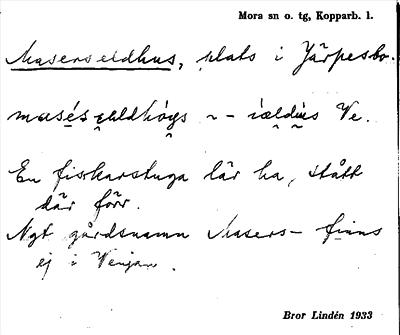 Mora sn o. tg, Kopparb. l.
Maserseldhus, plats i Järpesbo.
Ve.
En fiskarstuga lär ha, stått
där förr.
Ngt gårdsnamn Masers- finns
ej i Venjan.
Bror Lindén 1933